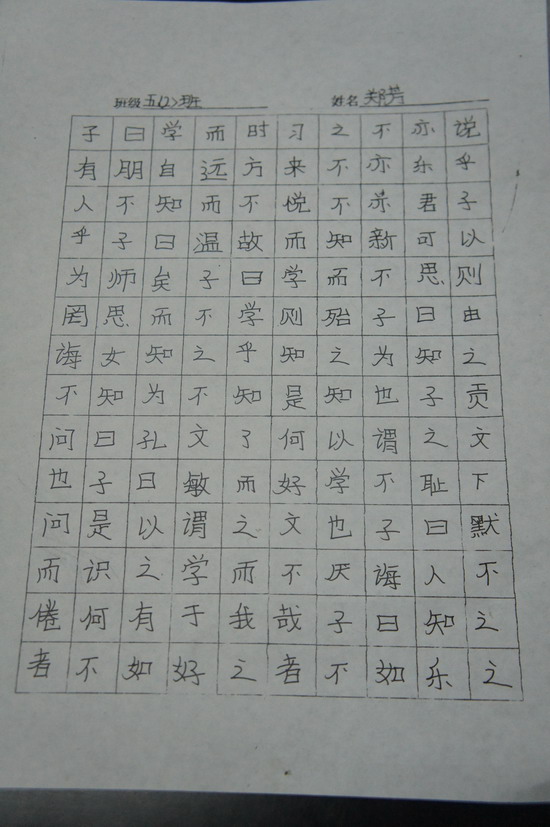 班级 五(2)班 姓名 郑芳
子曰学而时习之不亦说
有朋自远方来不亦乐乎
人不知而不悦不亦君子
乎子曰温故而知新可以
为师矣子曰学而不思则
罔思而不学则殆子曰由
诲女知之乎知之为知之
不知为不知是知也子贡
问曰孔文了何以谓之文
也子曰敏而好学不耻下
问是以谓之文也子曰默
而识之学而不厌诲人不
倦何有于我哉子曰知之
者不如好之者不如乐之